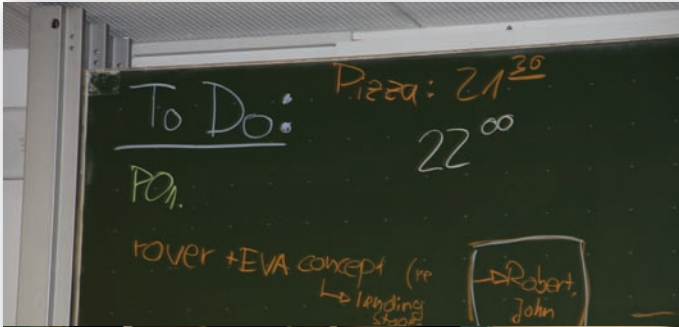 To Do:
Pizza: 21³⁰
22⁰⁰
PO1.
rover + EVA concept (re
↳ landing
→ Robert,
John